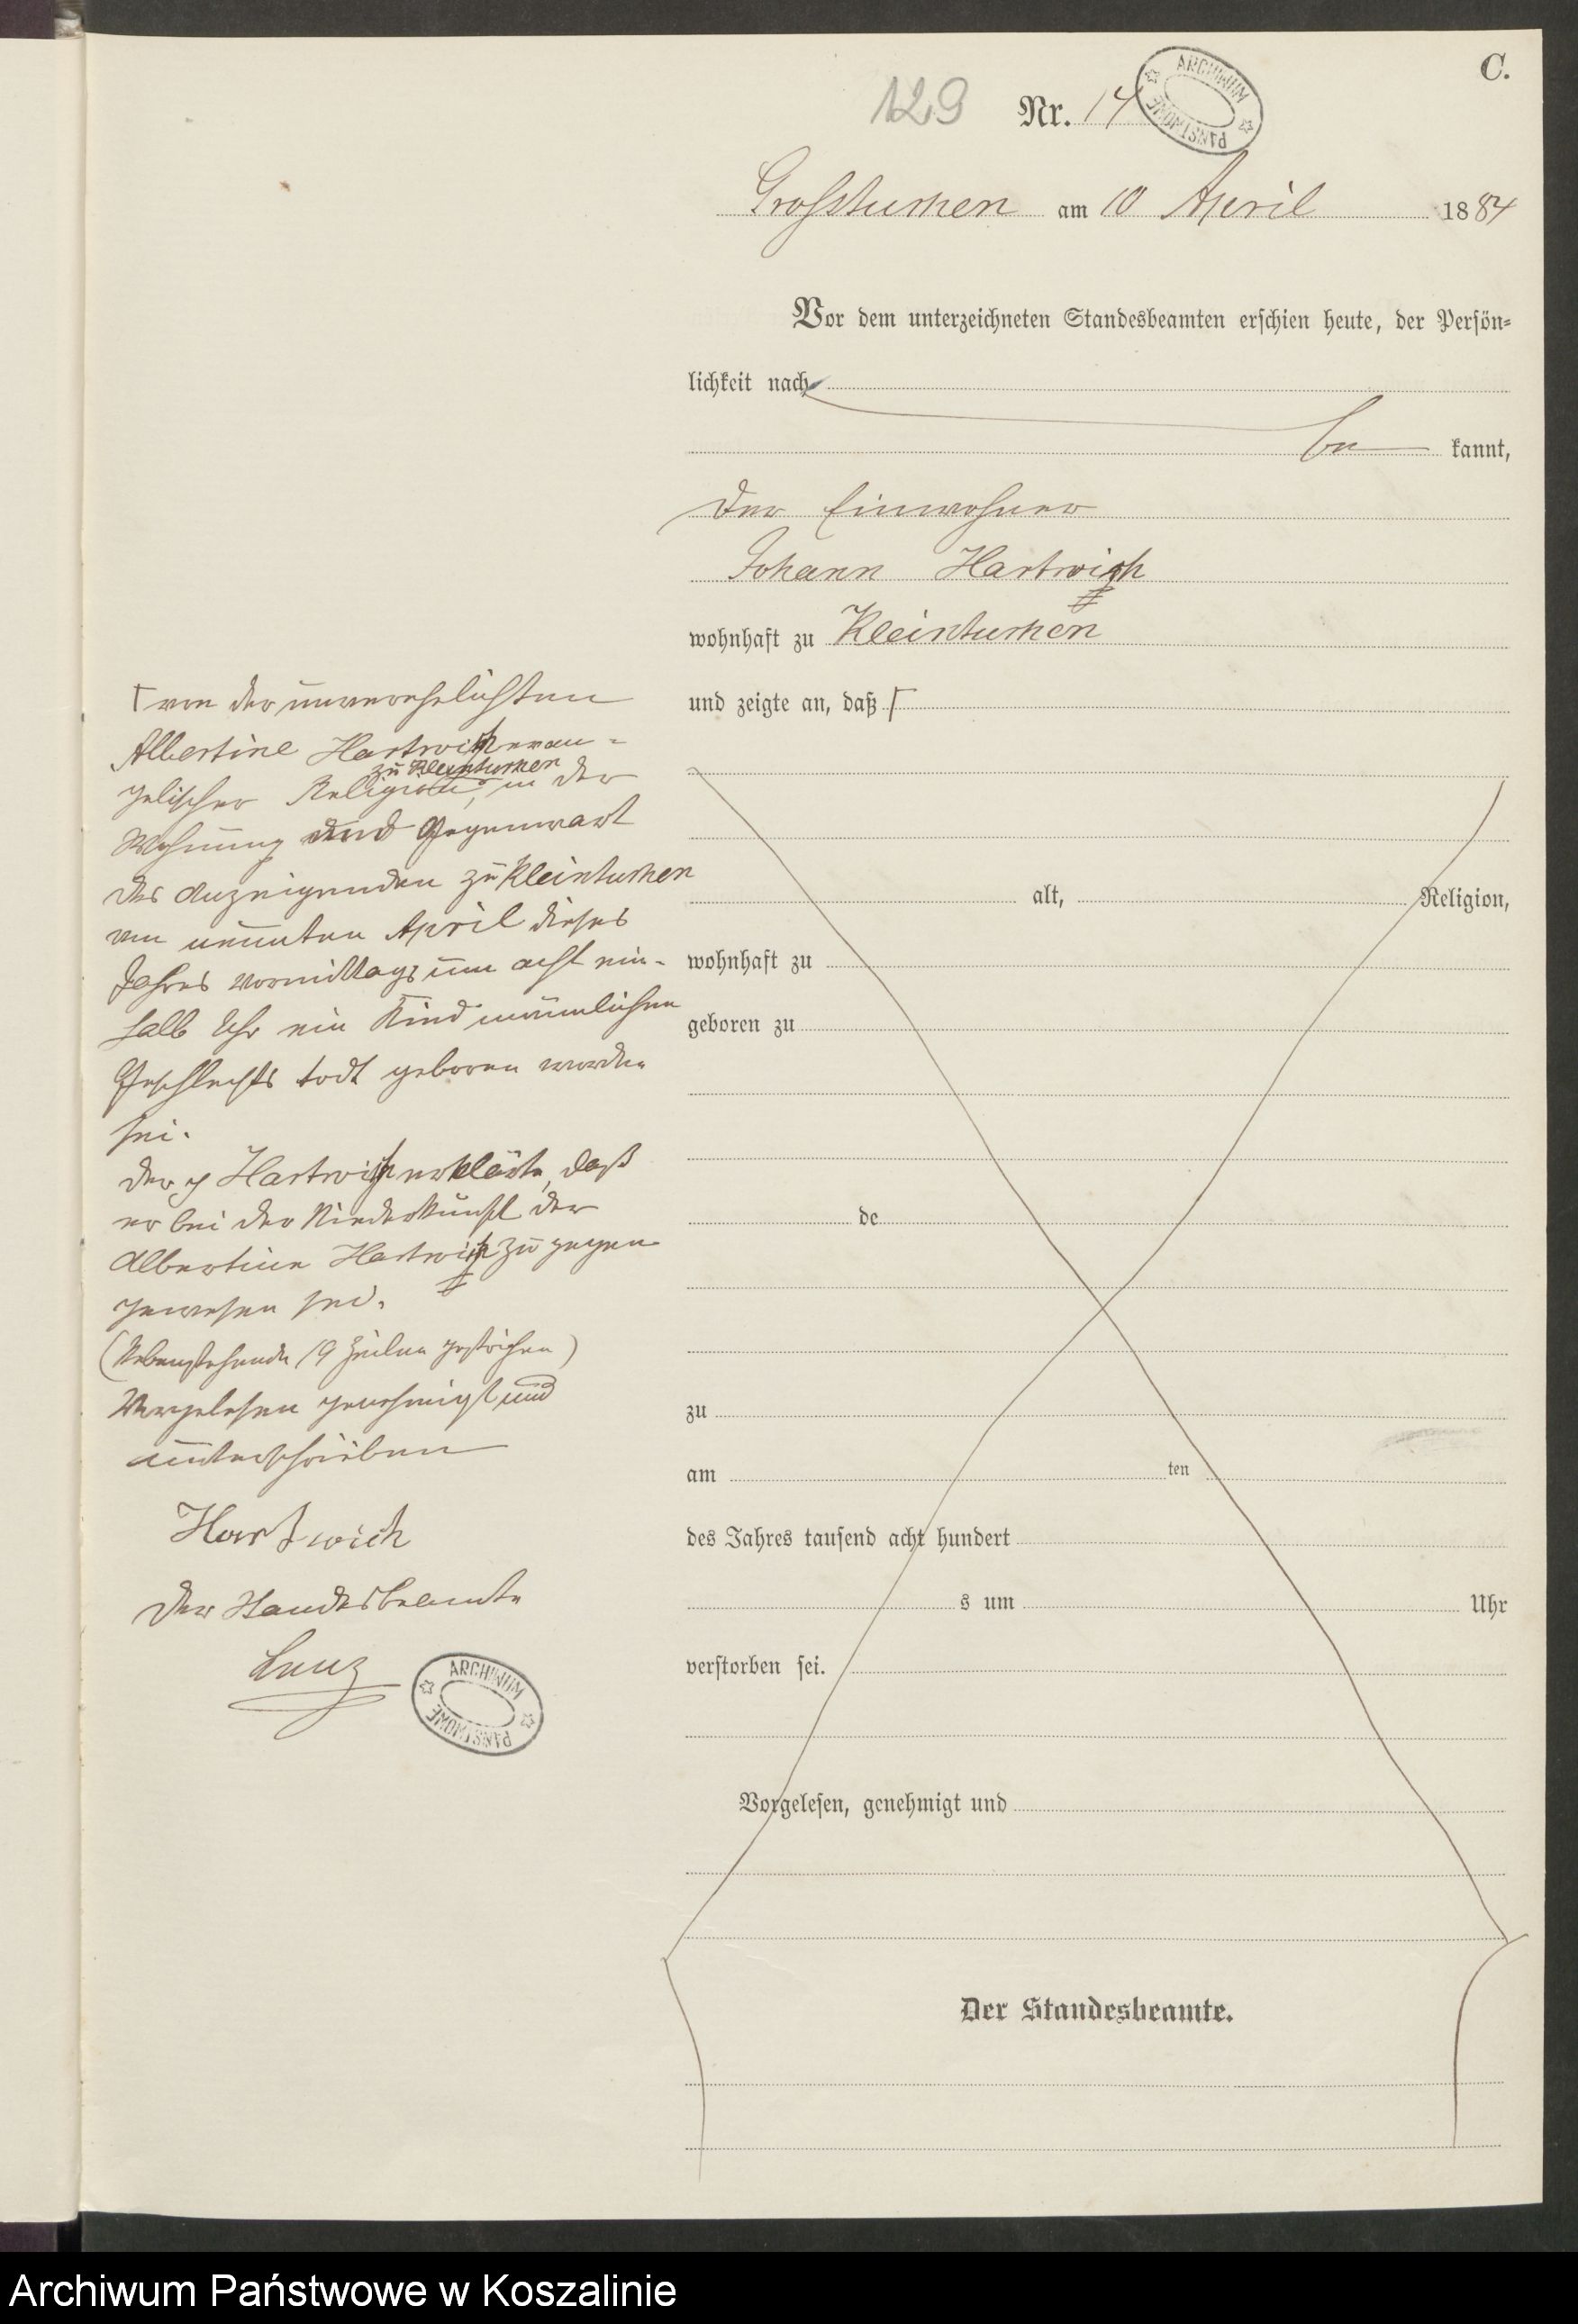 C.
129 Nr. 14
ARCHIWUM PAŃSTWOWE
Grosstuchen am 10 April 1884
Vor dem unterzeichneten Standesbeamten erschien heute, der Persön=
lichkeit nach
be kannt,
der Einwohner
Johann Hartwich
wohnhaft zu Kleintuchen
und zeigte an, daß Γ
alt, Religion,
wohnhaft zu
geboren zu
de
zu
am ten
des Jahres tausend acht hundert
s um Uhr
verstorben sei.
Vorgelesen, genehmigt und
Der Standesbeamte.
Γ von der unverehelichten
Albertine Hartwich evan-
zu Kleintuchen
gelischer Religion, in der
Wohnung und Gegenwart
des Anzeigenden zu Kleintuchen
am neunten April dieses
Jahres Vormittags um acht ein-
halb Uhr ein Kind männlichen
Geschlechts todt geboren worden
sei.
Der p Hartwich erklärte, daß
er bei der Niederkunft der
Albertine Hartwich zu gegen
gewesen sei.
(Nebenstehende 19 Zeilen gestrichen)
Vorgelesen genehmigt und
unterschrieben
Hartwich
Der Standesbeamte
Lenz
ARCHIWUM PAŃSTWOWE
Archiwum Państwowe w Koszalinie